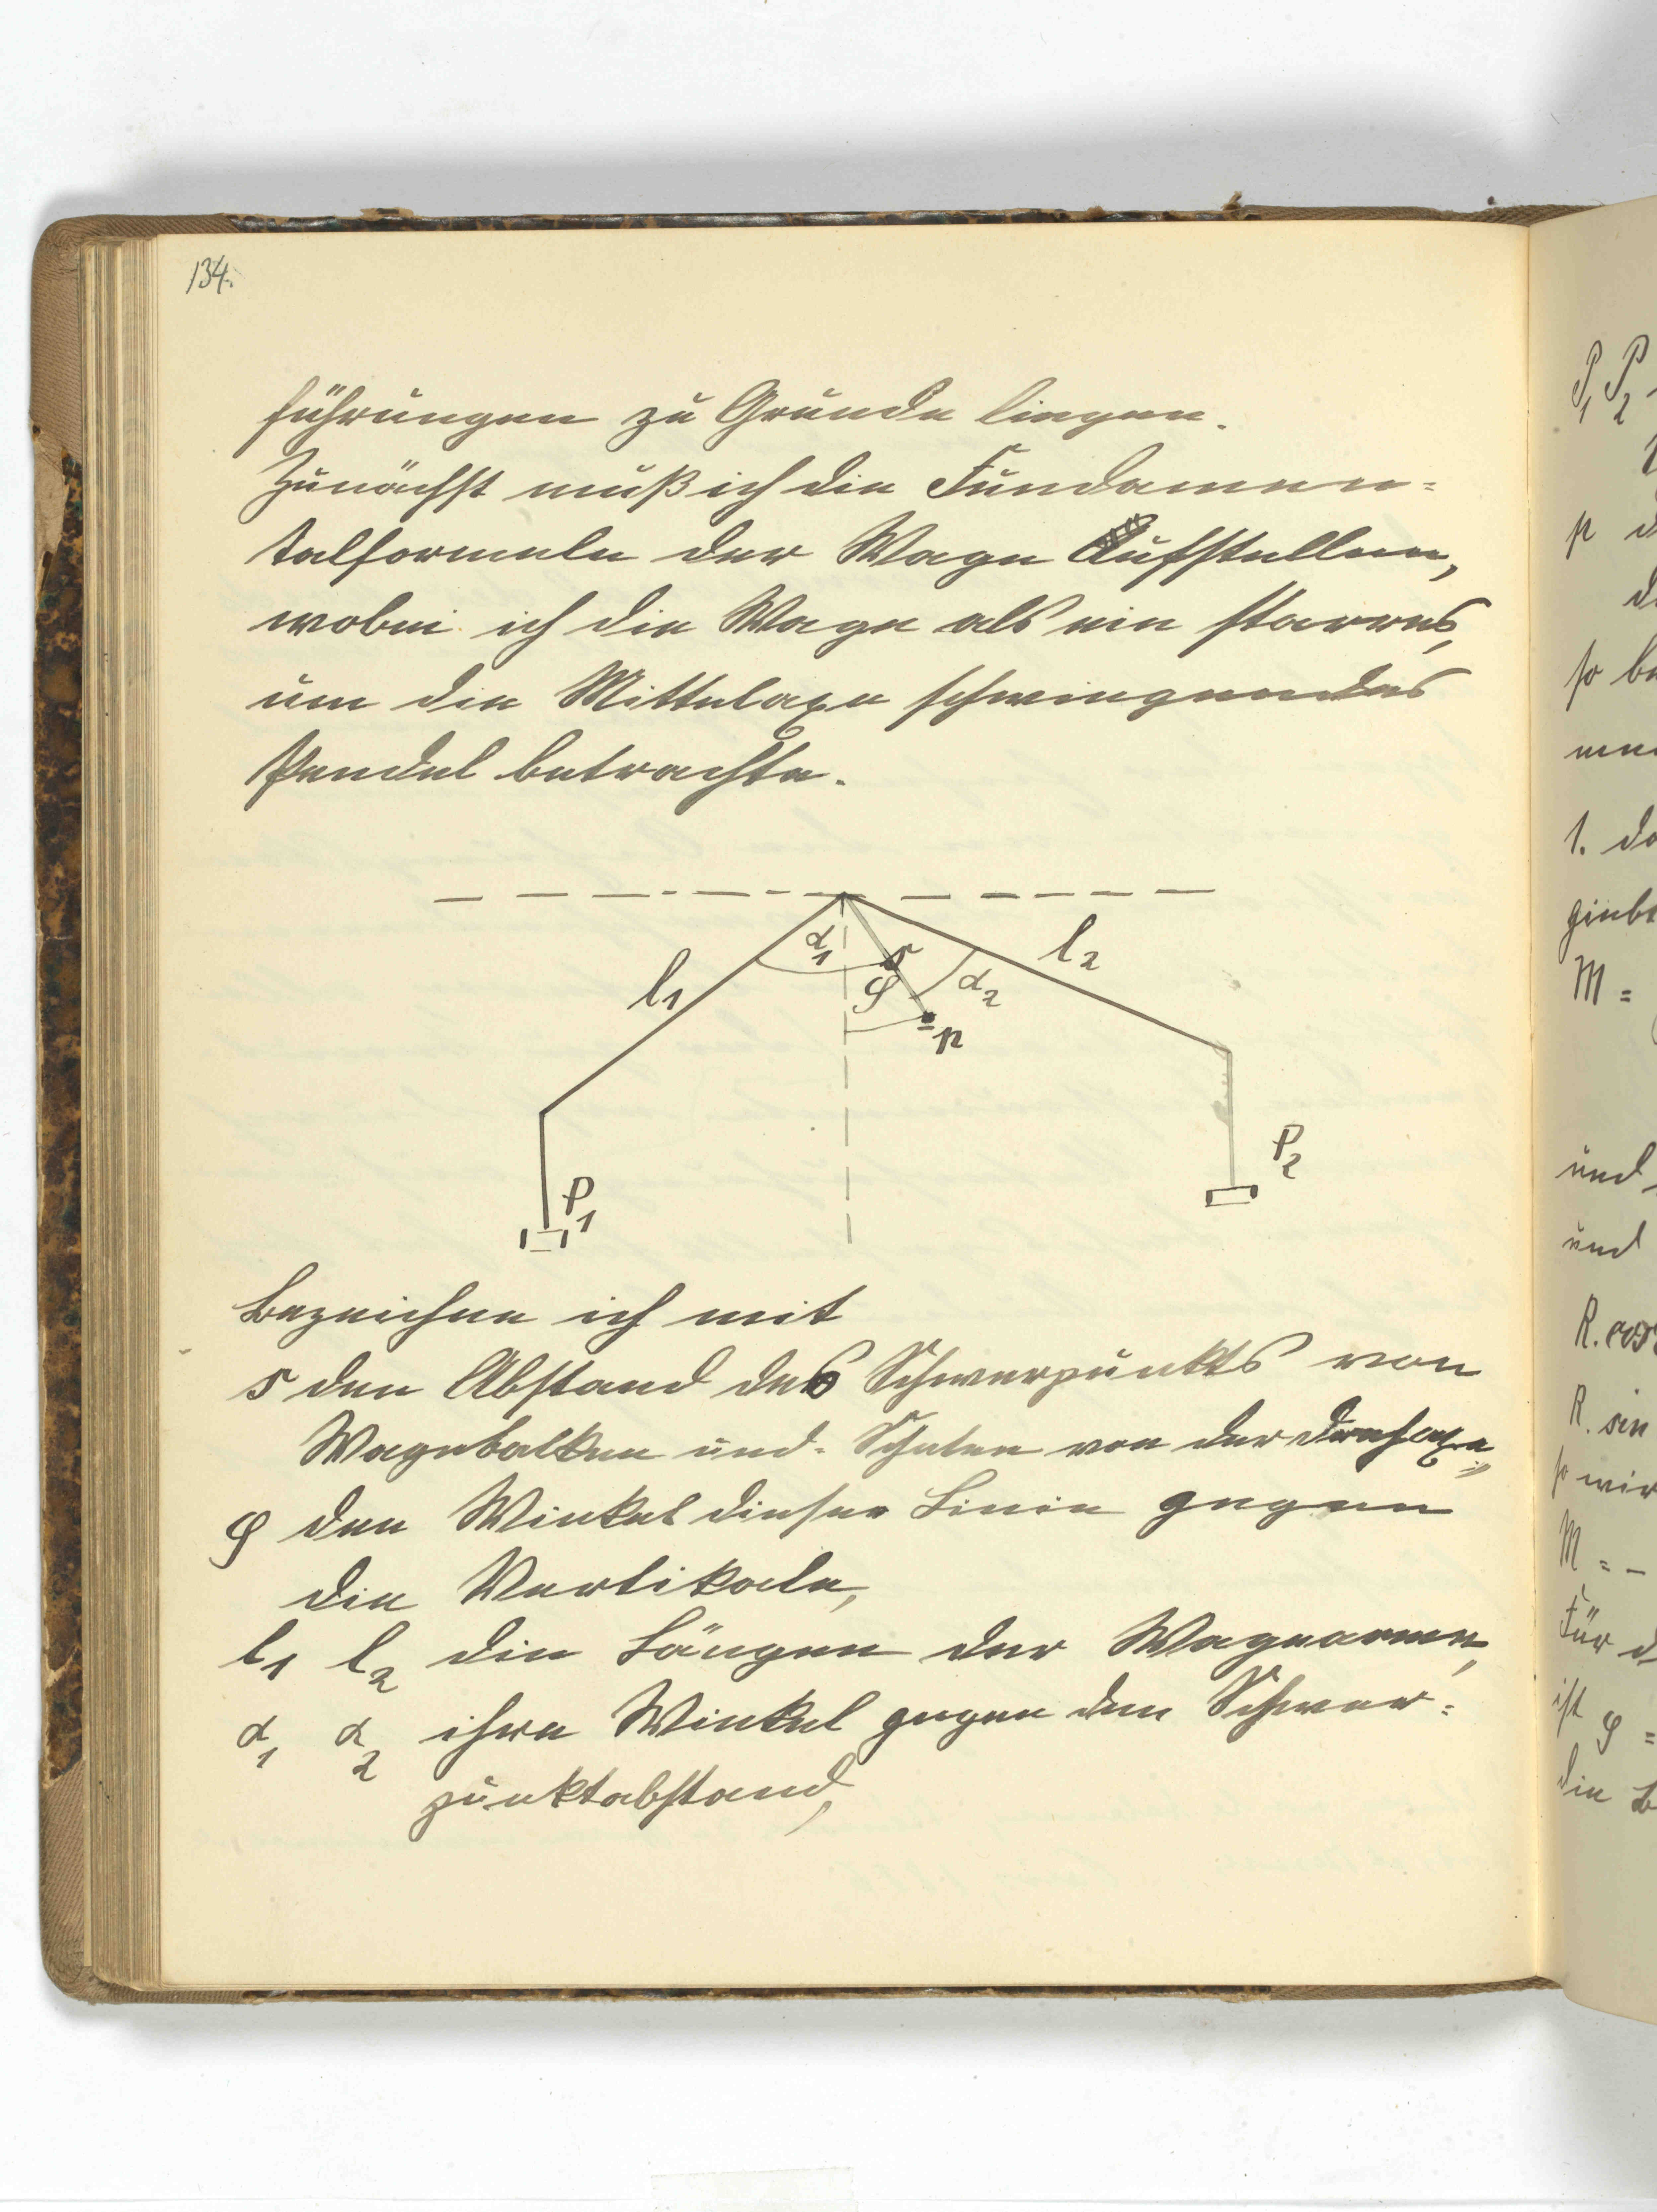 134.
führungen zu Grunde liegen.
Zunächst muß ich die Fundamen=
talformeln der Wage Aufstellen,
wobei ich die Wage als ein starres,
um die Mittelaxe schwingendes
Pendel betrachte.
α1
s
l2
l1
φ
α2
p
P2
P1
Bezeichne ich mit
s den Abstand des Schwerpunkts von
Wagebalken und Schalen von der Drehaxe,
φ den Winkel dieser Linie gegen
die Vertikale,
l1 l2 die Längen der Wagearme,
α1 α2 ihre Winkel gegen den Schwer=
punktabstand,
P1 P2
p
so
1.
giebt
M =
und
und
R. cos
R. sin
so wir
M = -
Für d
ist φ =
die